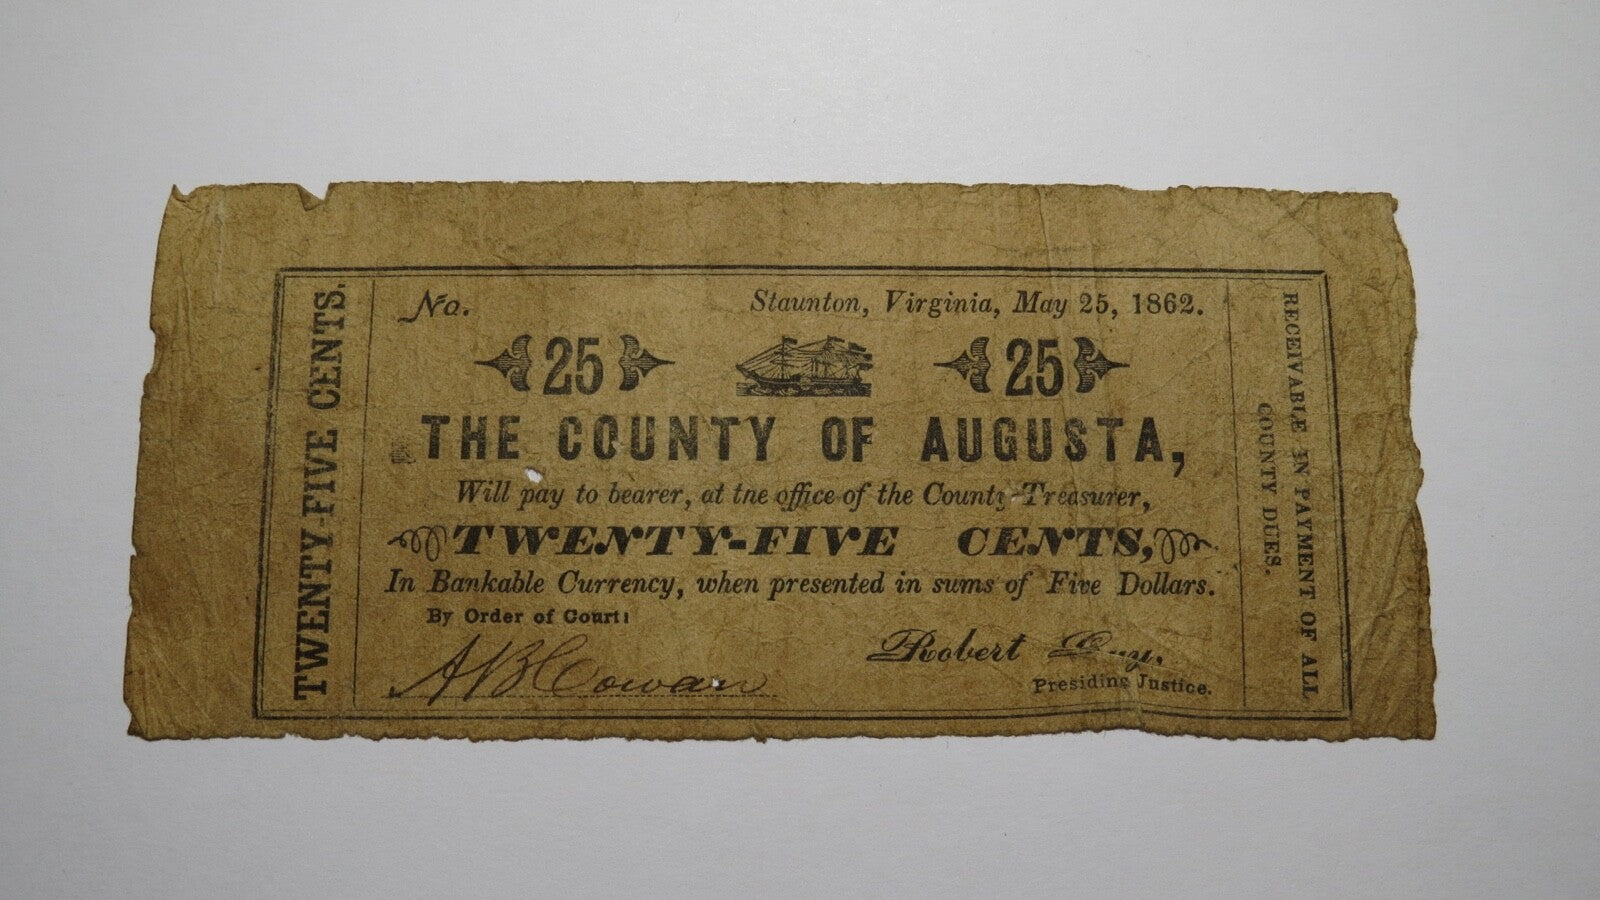 TWENTY-FIVE CENTS.
No.
Staunton, Virginia, May 25, 1862.
25 25
THE COUNTY OF AUGUSTA,
Will pay to bearer, at tne office of the County Treasurer,
TWENTY-FIVE CENTS,
In Bankable Currency, when presented in sums of Five Dollars.
By Order of Court:
A B Cowan
Robert
Presiding Justice.
RECEIVABLE IN PAYMENT OF ALL
COUNTY DUES.